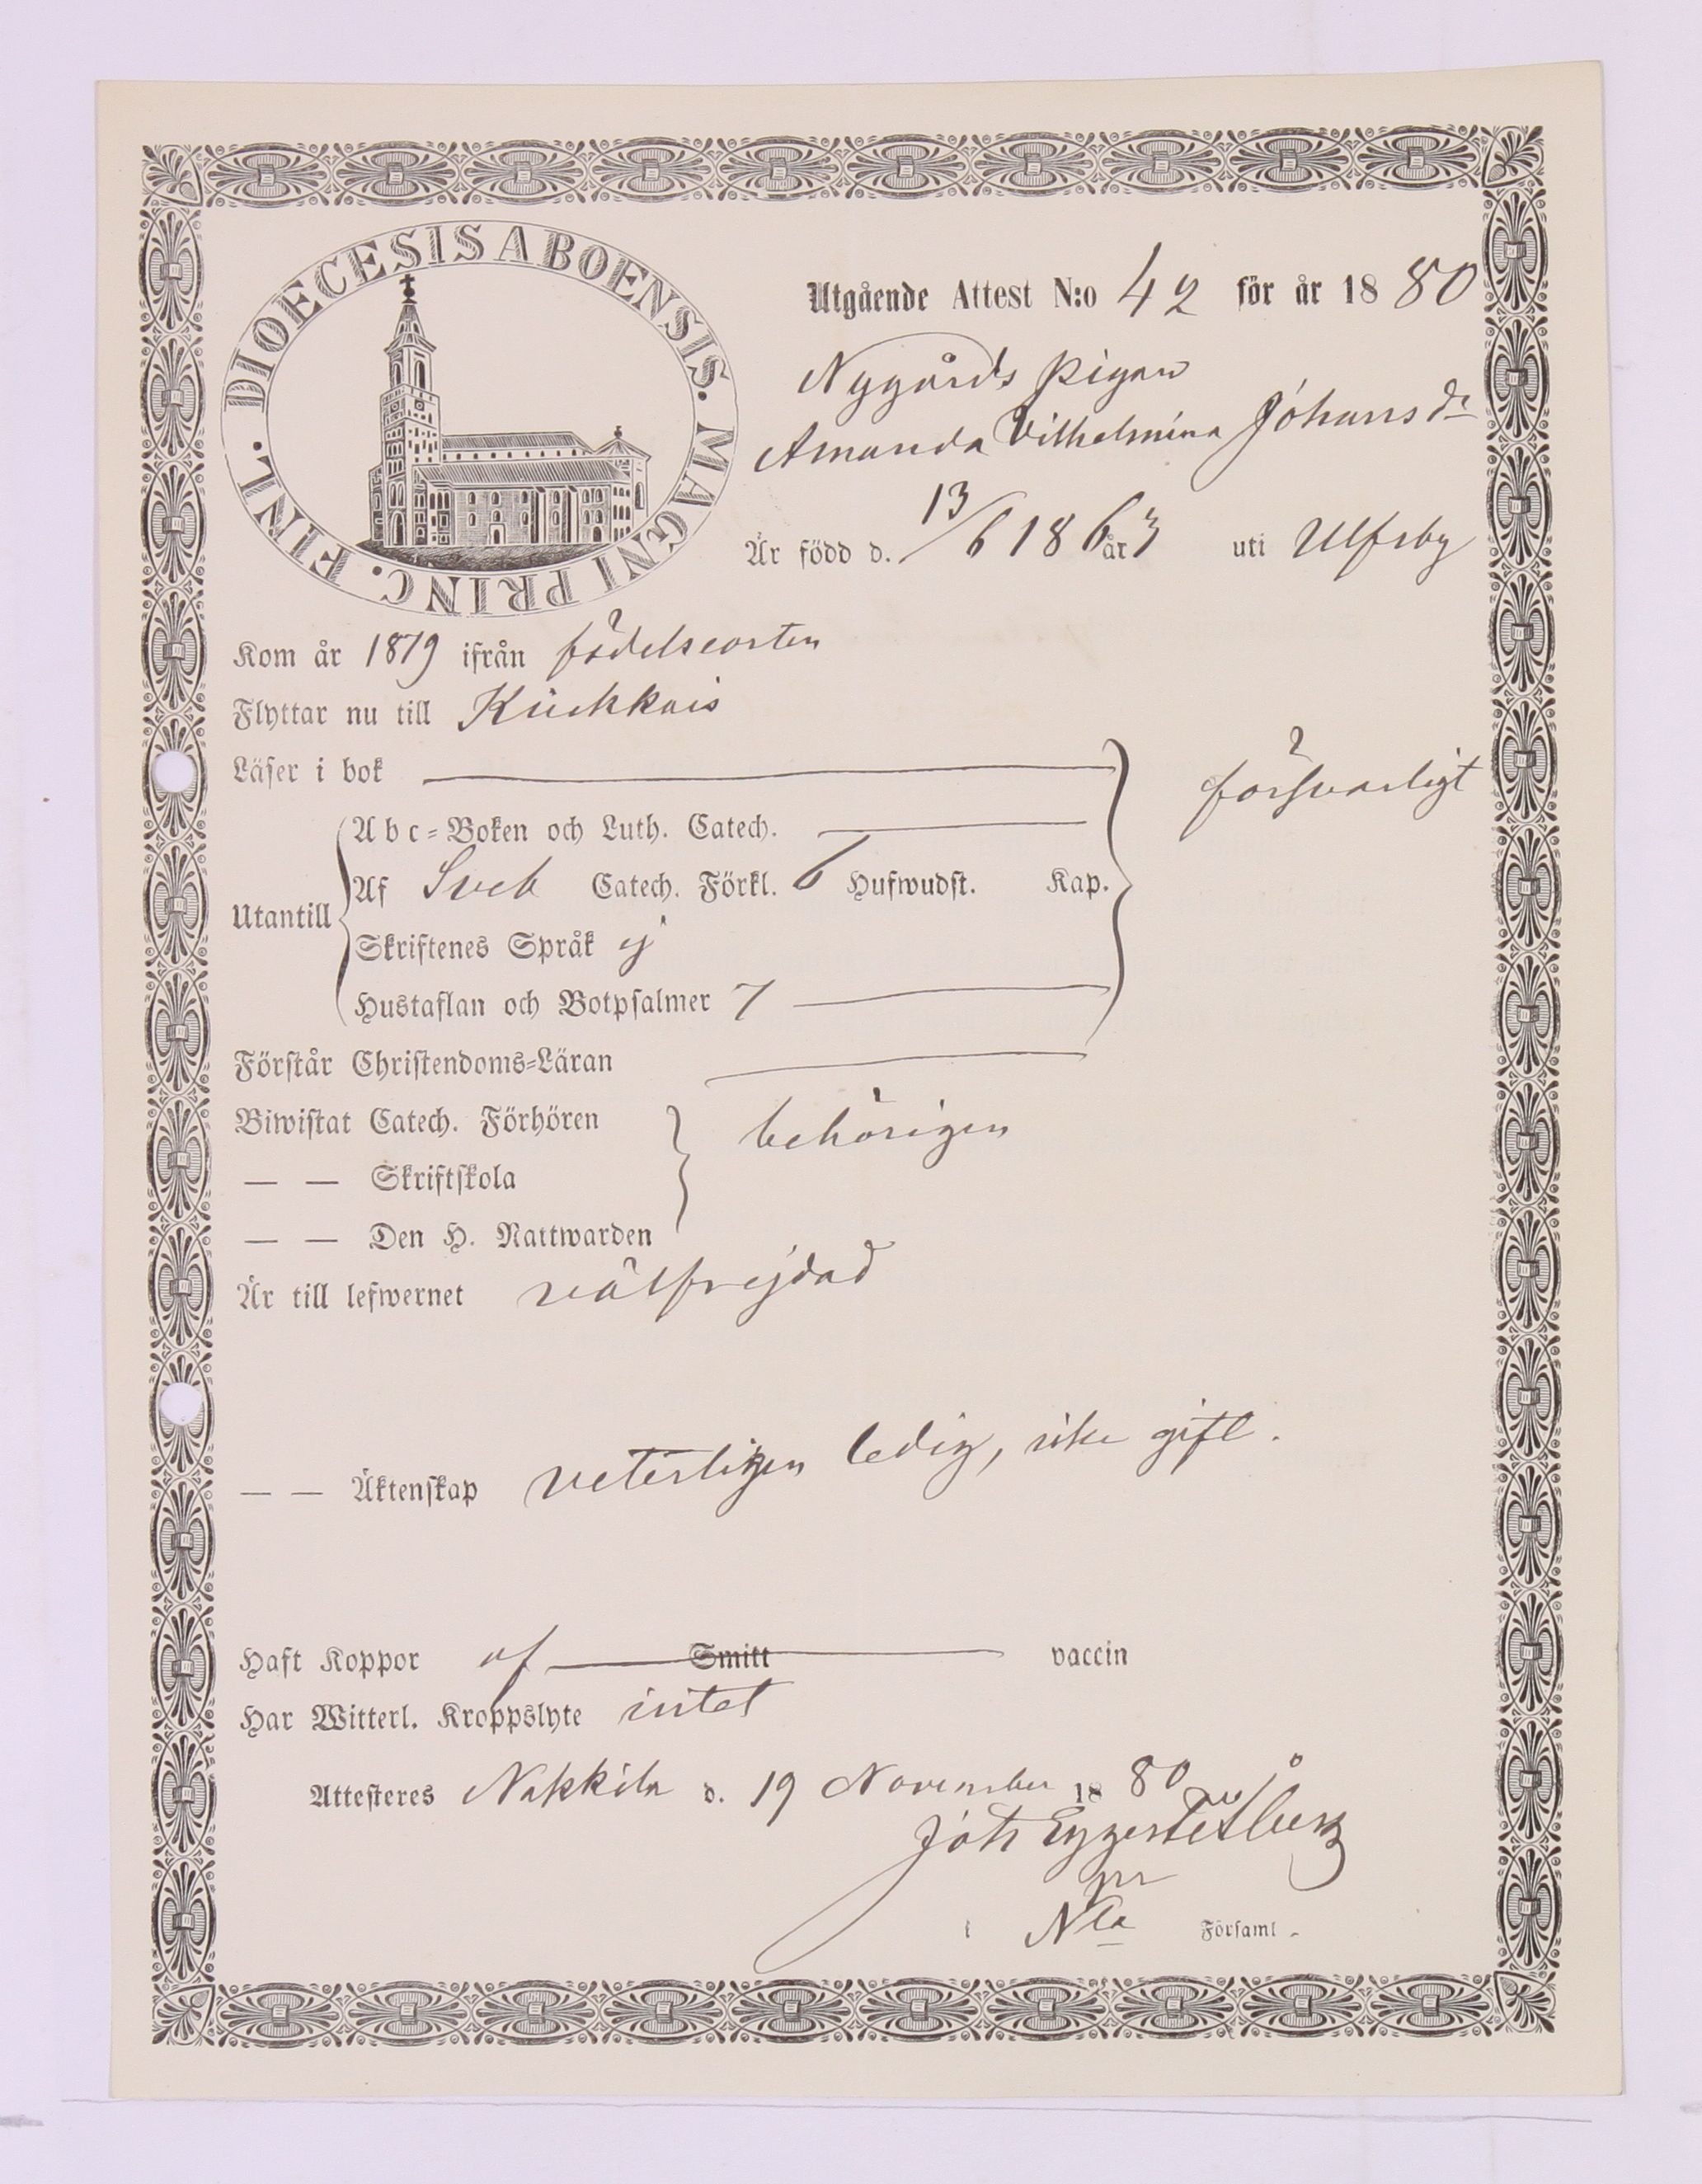 DIOECESIS ABOENSIS. MAGNI PRINC. FINL.
Utgående Attest N:o 42 för år 1880
Nygårds pigan
Amanda Vilhelmina Johans dr
Är född d. 13/6 1863 år uti Ulfsby
Kom år 1879 ifrån födelseorten
Flyttar nu till
Läser i bok försvarligt
Abc-Boken och Luth. Catech.
Utantill
Af Sveb Catech. Förkl. 6 Hufwudst. Kap.
Skriftenes Språk ej
Hustaflan och Botpsalmer 7
Förstår Christendoms-Läran
Biwistat Catech. Förhören behörigen
— — Skriftskola
— — Den H. Nattwarden
Är till lefwernet välfrejdad
— — Äktenskap veterligen ledig, icke gift.
Haft Koppor af Smitt vaccin
Har Witterl. Kroppslyte intet
Attesteres Nakkila d. 19 November 1880
Joh Eggert
i Nla Församl.